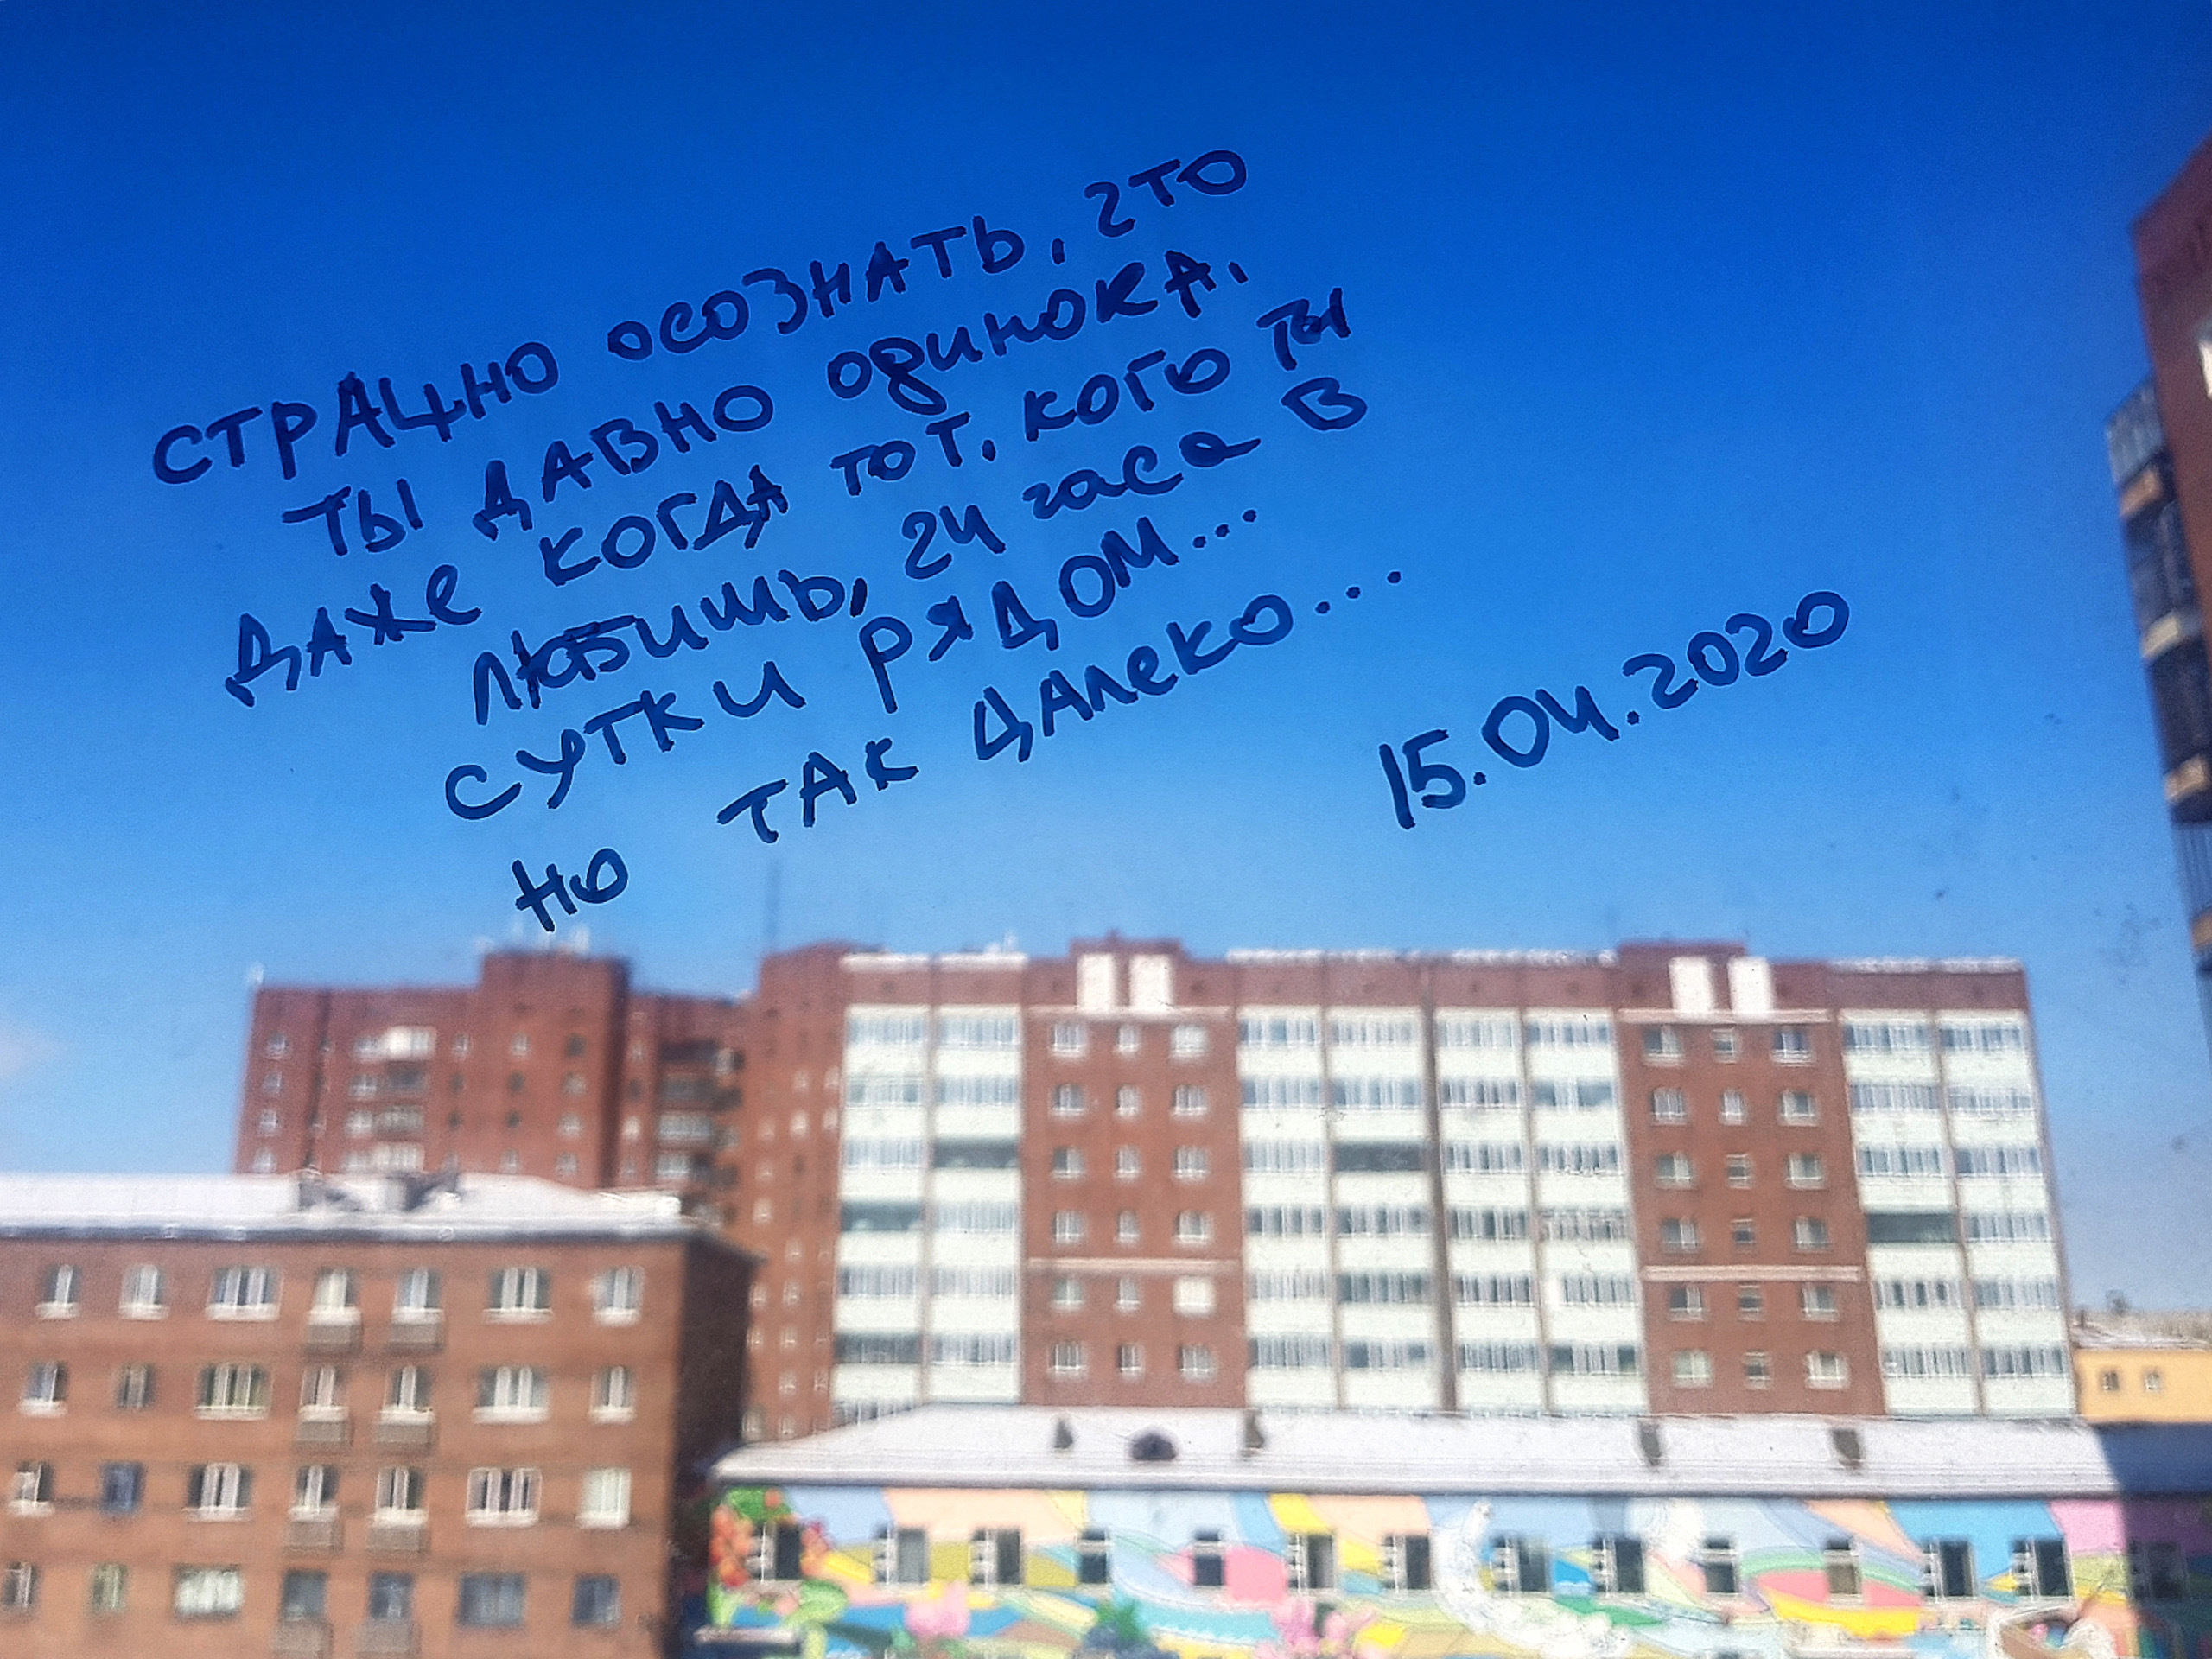 СТРАШНО ОСОЗНАТЬ, ЧТО
ТЫ ДАВНО ОДИНОКА,
ДАЖЕ КОГДА ТОТ, КОГО ТЫ
ЛЮБИШЬ, 24 часа В
СУТКИ РЯДОМ...
НО ТАК ДАЛЕКО...
15.04.2020